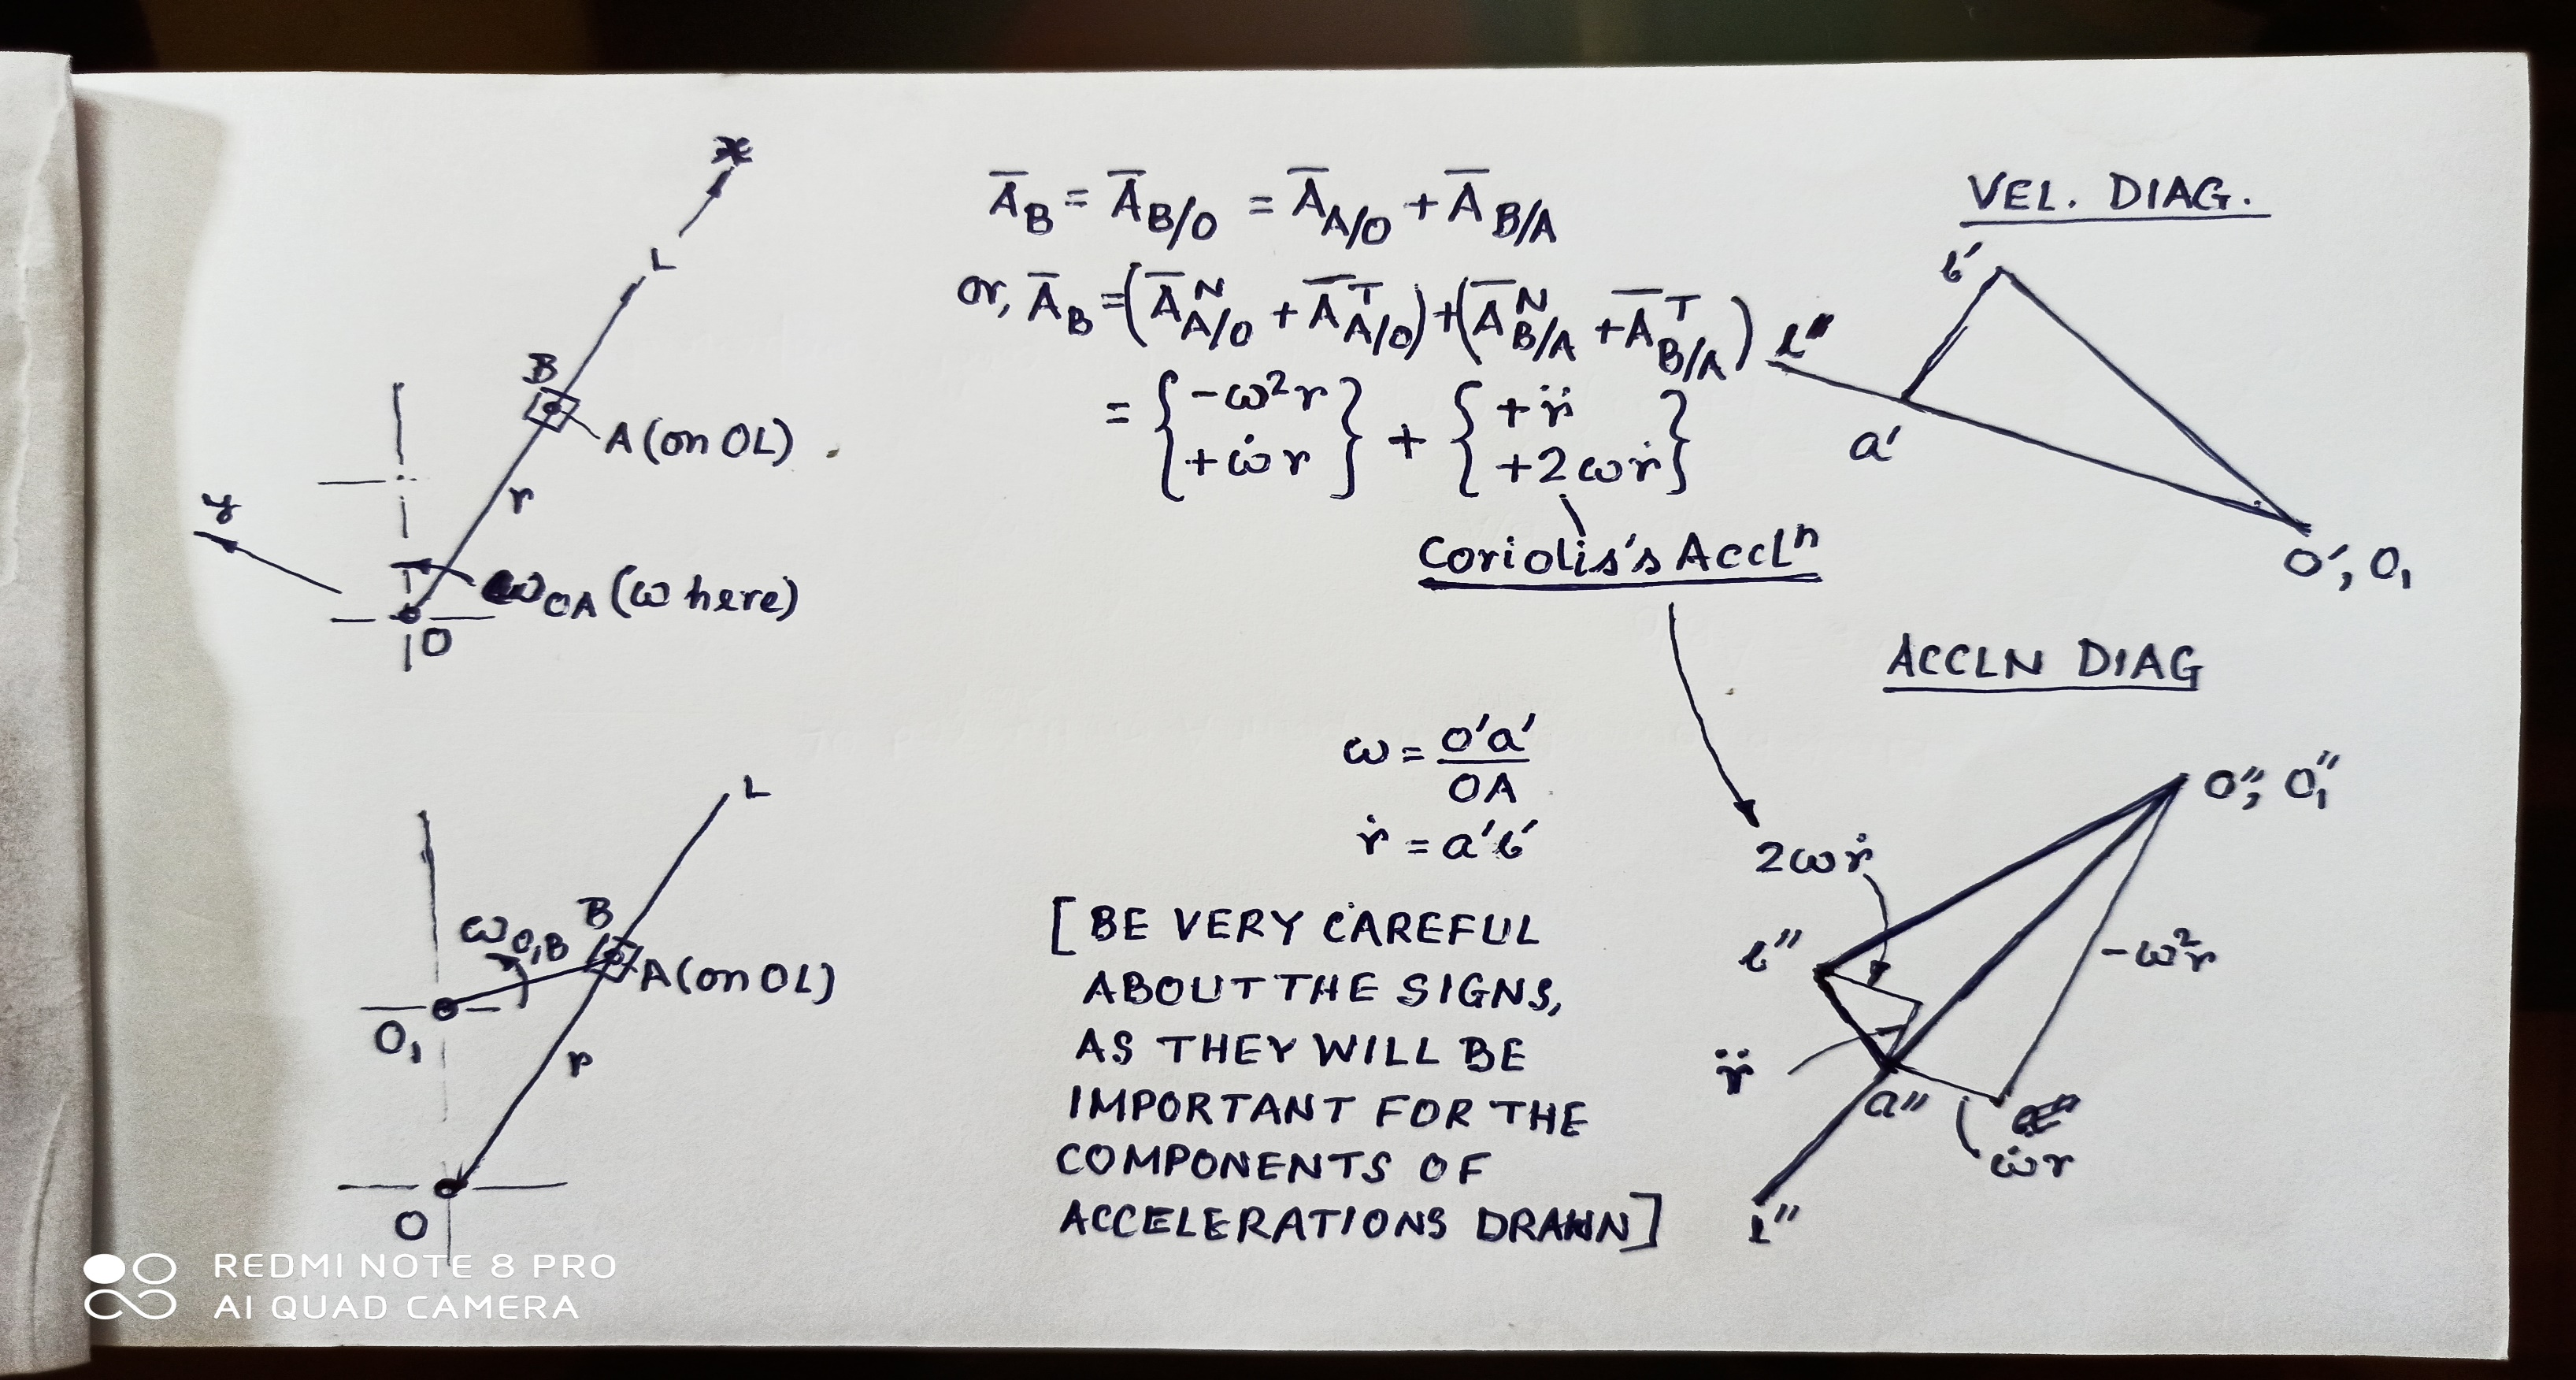 x
L
B
A (on OL)
r
y
ω_OA (ω here)
O
A̅_B = A̅_B/O = A̅_A/O + A̅_B/A
or, A̅_B = (A̅^N_A/O + A̅^T_A/O) + (A̅^N_B/A + A̅^T_B/A)
= { -ω²r } + { +r̈ }
{ +ω̇r } { +2ωṙ }
Coriolis's Accl^n
VEL. DIAG.
b'
l"
a'
O', O₁
L
B
ω_O₁B
A (on OL)
O₁
r
O
ω = o'a' / OA
ṙ = a'b'
[BE VERY CAREFUL
ABOUT THE SIGNS,
AS THEY WILL BE
IMPORTANT FOR THE
COMPONENTS OF
ACCELERATIONS DRAWN]
ACCLN DIAG
O", O₁"
2ωṙ
b"
-ω²r
r̈
a"
ω̇r
l"
REDMI NOTE 8 PRO
AI QUAD CAMERA